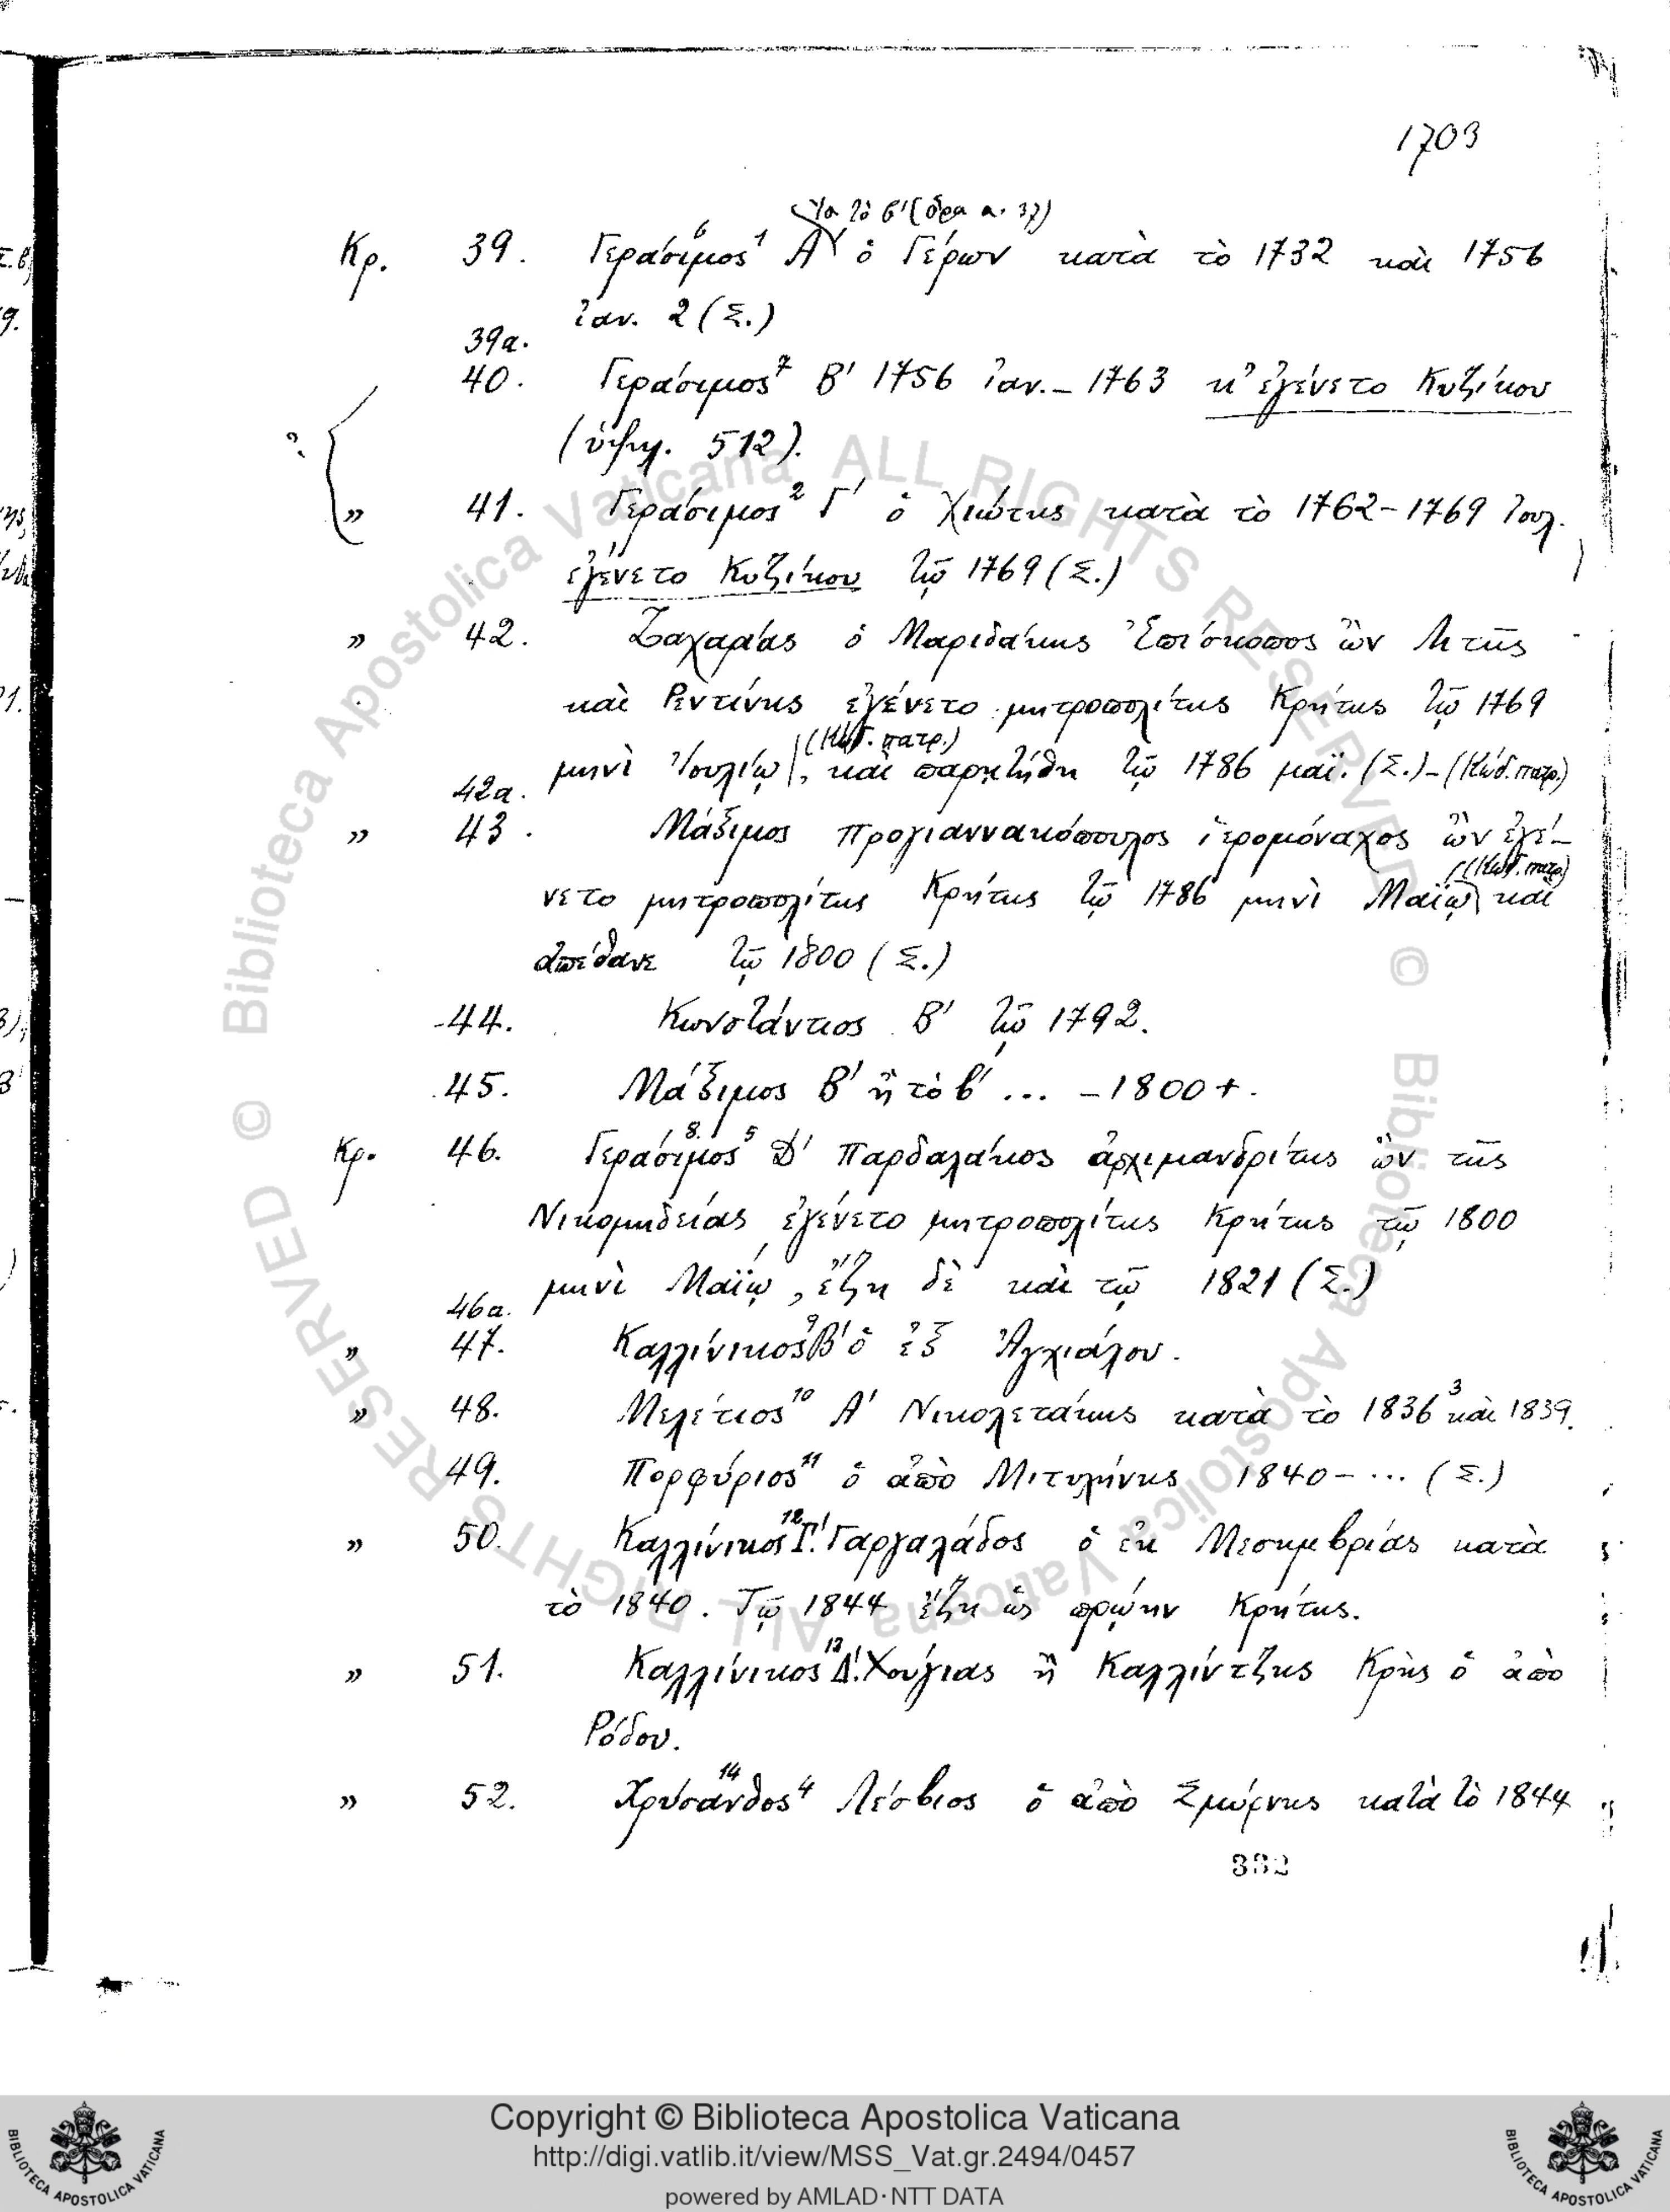 1703
ἢ τὸ β′ (ὅρα α. 37)
Κρ. 39. Γεράσιμος⁶ ¹ Α′ ὁ Γέρων κατὰ τὸ 1732 καὶ 1756
ἰαν. 2 (Σ.)
39α.
40. Γεράσιμος⁷ Β′ 1756 ἰαν. – 1763 κ' ἐγένετο Κυζίκου
(ὑψηλ. 512).
? » 41. Γεράσιμος² Γ′ ὁ Χιώτης κατὰ τὸ 1762–1769 Ἰουλ.
ἐγένετο Κυζίκου τῷ 1769 (Σ.)
» 42. Ζαχαρίας ὁ Μαριδάκης Ἐπίσκοπος ὢν Λητῆς
καὶ Ρεντίνης ἐγένετο μητροπολίτης Κρήτης τῷ 1769
(Κώδ. πατρ.)
μηνὶ Ἰουλίῳ, καὶ παρῃτήθη τῷ 1786 μαΐ. (Σ.) – (Κώδ. πατρ.)
42α.
» 43. Μάξιμος Προγιαννακόπουλος ἱερομόναχος ὢν ἐγέ–
(Κώδ. πατρ.)
νετο μητροπολίτης Κρήτης τῷ 1786 μηνὶ Μαΐῳ καὶ
ἀπέθανε τῷ 1800 (Σ.)
44. Κωνστάντιος Β′ τῷ 1792.
45. Μάξιμος Β′ ἢ τὸ β′ ... – 1800 +.
Κρ. 46. Γεράσιμος⁸· ⁵ Δ′ Παρδαλάκος ἀρχιμανδρίτης ὢν τῆς
Νικομηδείας ἐγένετο μητροπολίτης Κρήτης τῷ 1800
μηνὶ Μαΐῳ, ἔζη δὲ καὶ τῷ 1821 (Σ.)
46α.
» 47. Καλλίνικος⁹ Β′ ὁ ἐξ Ἀγχιάλου.
» 48. Μελέτιος¹⁰ Α′ Νικολετάκης κατὰ τὸ 1836³ καὶ 1839.
49. Πορφύριος¹¹ ὁ ἀπὸ Μιτυλήνης 1840 – ... (Σ.)
» 50. Καλλίνικος¹² Γ′. Γαργαλάδος ὁ ἐκ Μεσημβρίας κατὰ
τὸ 1840. Τῷ 1844 ἔζη ὡς πρώην Κρήτης.
» 51. Καλλίνικος¹³ Δ′. Χούγιας ἢ Καλλίντζης Κρὴς ὁ ἀπὸ
Ρόδου.
» 52. Χρύσανθος¹⁴ ⁴ Λέσβιος ὁ ἀπὸ Σμύρνης κατὰ τὸ 1844
382
Copyright © Biblioteca Apostolica Vaticana
http://digi.vatlib.it/view/MSS_Vat.gr.2494/0457
powered by AMLAD·NTT DATA
BIBLIOTECA APOSTOLICA VATICANA
BIBLIOTECA APOSTOLICA VATICANA
© Biblioteca Apostolica Vaticana ALL RIGHTS RESERVED
© Biblioteca Apostolica Vaticana ALL RIGHTS RESERVED